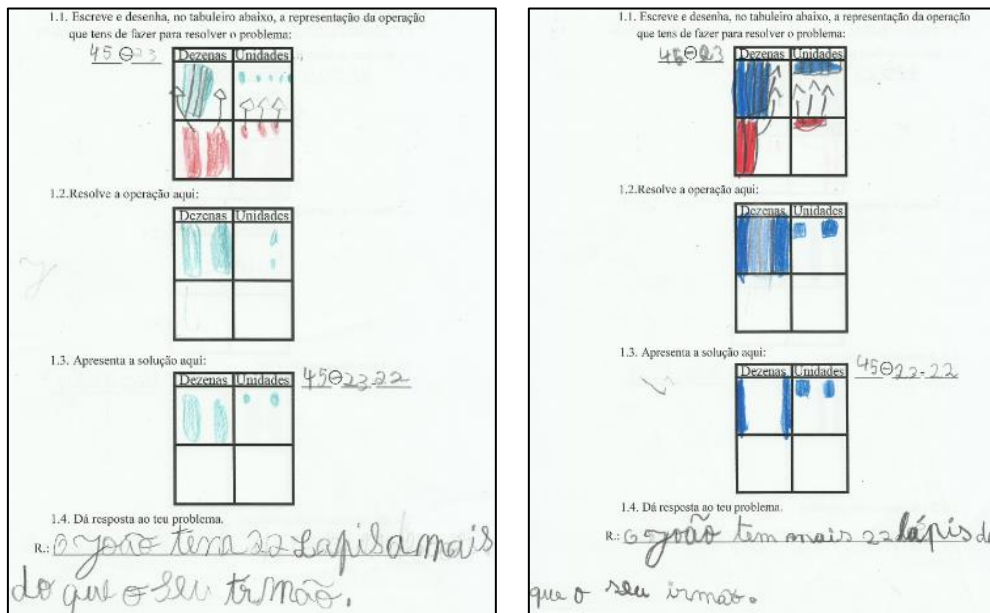 1.1. Escreve e desenha, no tabuleiro abaixo, a representação da operação
que tens de fazer para resolver o problema:
45 ⊖ 23
Dezenas Unidades
1.2.Resolve a operação aqui:
Dezenas Unidades
1.3. Apresenta a solução aqui:
Dezenas Unidades
45⊖23-22
1.4. Dá resposta ao teu problema.
R.: O João tem 22 Lapis a mais
do que o seu irmão.
1.1. Escreve e desenha, no tabuleiro abaixo, a representação da operação
que tens de fazer para resolver o problema:
45⊖23
Dezenas Unidades
1.2.Resolve a operação aqui:
Dezenas Unidades
1.3. Apresenta a solução aqui:
Dezenas Unidades
45⊖22-22
1.4. Dá resposta ao teu problema.
R.: O João tem mais 22 lápis do
que o seu irmão.